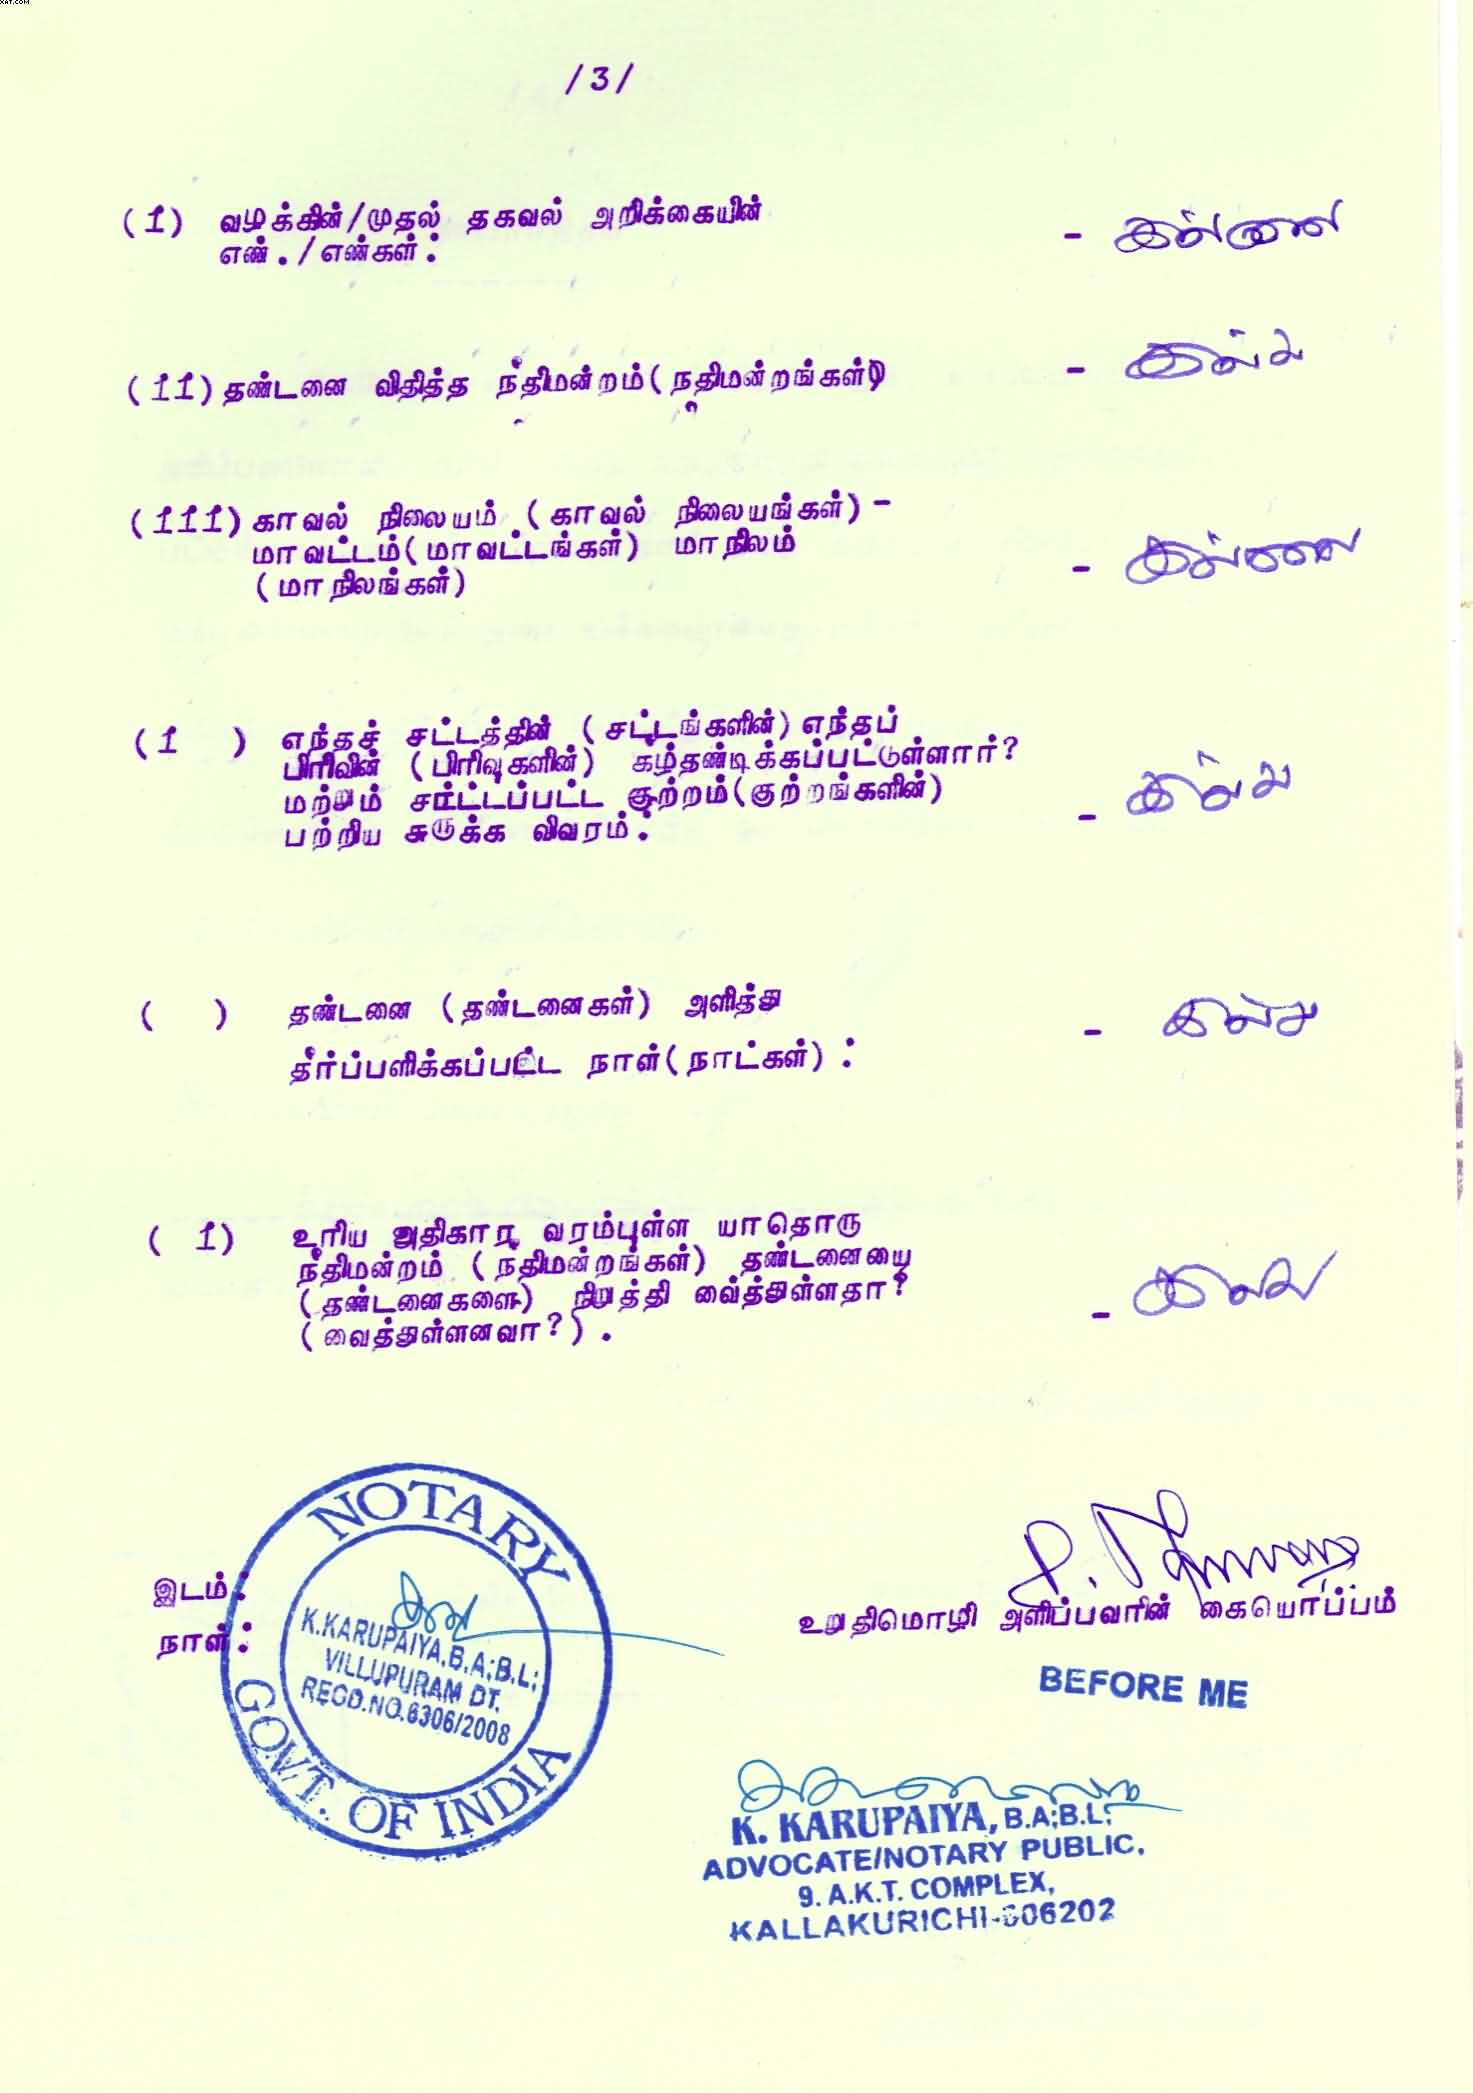 XAT.COM
/3/
(1) வழக்கின்/முதல் தகவல் அறிக்கையின்
எண்./எண்கள்:
-
(11) தண்டனை விதித்த நீதிமன்றம்(நீதிமன்றங்கள்)
-
(111) காவல் நிலையம் (காவல் நிலையங்கள்)-
மாவட்டம்(மாவட்டங்கள்) மாநிலம்
(மாநிலங்கள்)
-
(1 ) எந்தச் சட்டத்தின் (சட்டங்களின்) எந்தப்
பிரிவின் (பிரிவுகளின்) கீழ்தண்டிக்கப்பட்டுள்ளார்?
மற்றும் சாட்டப்பட்ட குற்றம்(குற்றங்களின்)
பற்றிய சுருக்க விவரம்:
-
( ) தண்டனை (தண்டனைகள்) அளித்து
-
தீர்ப்பளிக்கப்பட்ட நாள்(நாட்கள்) :
( 1) உரிய அதிகார வரம்புள்ள யாதொரு
நீதிமன்றம் (நீதிமன்றங்கள்) தண்டனையை
(தண்டனைகளை) நிறுத்தி வைத்துள்ளதா?
(வைத்துள்ளனவா?).
-
இடம்:
நாள்:
NOTARY
K.KARUPAIYA,B.A;B.L;
VILLUPURAM DT.
REGD.NO.6306/2008
GOVT. OF INDIA
உறுதிமொழி அளிப்பவரின் கையொப்பம்
BEFORE ME
K. KARUPAIYA, B.A;B.L;
ADVOCATE/NOTARY PUBLIC,
9. A.K.T. COMPLEX,
KALLAKURICHI-606202